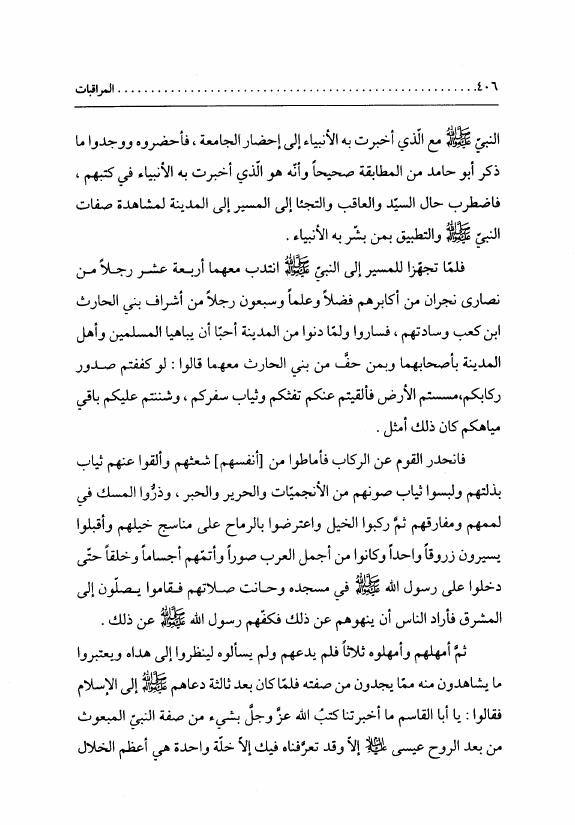 ٤٠٦ ................................................ المراقبات
النبيّ ﷺ مع الّذي أخبرت به الأنبياء إلى إحضار الجامعة ، فأحضروه ووجدوا ما
ذكر أبو حامد من المطابقة صحيحاً وأنّه هو الّذي أخبرت به الأنبياء في كتبهم ،
فاضطرب حال السيّد والعاقب والتجئا إلى المسير إلى المدينة لمشاهدة صفات
النبيّ ﷺ والتطبيق بمن بشّر به الأنبياء .
فلمّا تجهّزا للمسير إلى النبيّ ﷺ انتدب معهما أربعة عشر رجلاً من
نصارى نجران من أكابرهم فضلاً وعلماً وسبعون رجلاً من أشراف بني الحارث
ابن كعب وسادتهم ، فساروا ولمّا دنوا من المدينة أحبّا أن يباهيا المسلمين وأهل
المدينة بأصحابهما وبمن حفَّ من بني الحارث معهما قالوا : لو كففتم صدور
ركابكم،مسستم الأرض فألقيتم عنكم تفثكم وثياب سفركم ، وشننتم عليكم باقي
مياهكم كان ذلك أمثل .
فانحدر القوم عن الركاب فأماطوا من [أنفسهم] شعثهم وألقوا عنهم ثياب
بذلتهم ولبسوا ثياب صونهم من الأنجميّات والحرير والحبر ، وذرُّوا المسك في
لممهم ومفارقهم ثمَّ ركبوا الخيل واعترضوا بالرماح على مناسج خيلهم وأقبلوا
يسيرون زروقاً واحداً وكانوا من أجمل العرب صوراً وأتمّهم أجساماً وخلقاً حتّى
دخلوا على رسول الله ﷺ في مسجده وحانت صلاتهم فقاموا يصلّون إلى
المشرق فأراد الناس أن ينهوهم عن ذلك فكفّهم رسول الله ﷺ عن ذلك .
ثمَّ أمهلهم وأمهلوه ثلاثاً فلم يدعهم ولم يسألوه لينظروا إلى هداه ويعتبروا
ما يشاهدون منه ممّا يجدون من صفته فلمّا كان بعد ثالثة دعاهم ﷺ إلى الإسلام
فقالوا : يا أبا القاسم ما أخبرتنا كتبُ الله عزَّ وجلَّ بشيء من صفة النبيّ المبعوث
من بعد الروح عيسى عليه السلام إلاّ وقد تعرّفناه فيك إلاّ خلّة واحدة هي أعظم الخلال